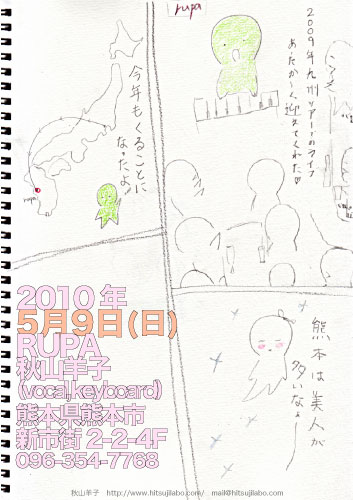 rupa
2009年九州ツアーのライブ
あたたかく迎えてくれた♡
今年もくることに
なったよ♪
rupa
熊本は美人が
多いなぁー
2010年
5月9日(日)
RUPA
秋山羊子
(vocal,keyboard)
熊本県熊本市
新市街2-2-4F
096-354-7768
秋山羊子 http://www.hitsujilabo.com/ mail@hitsujilabo.com